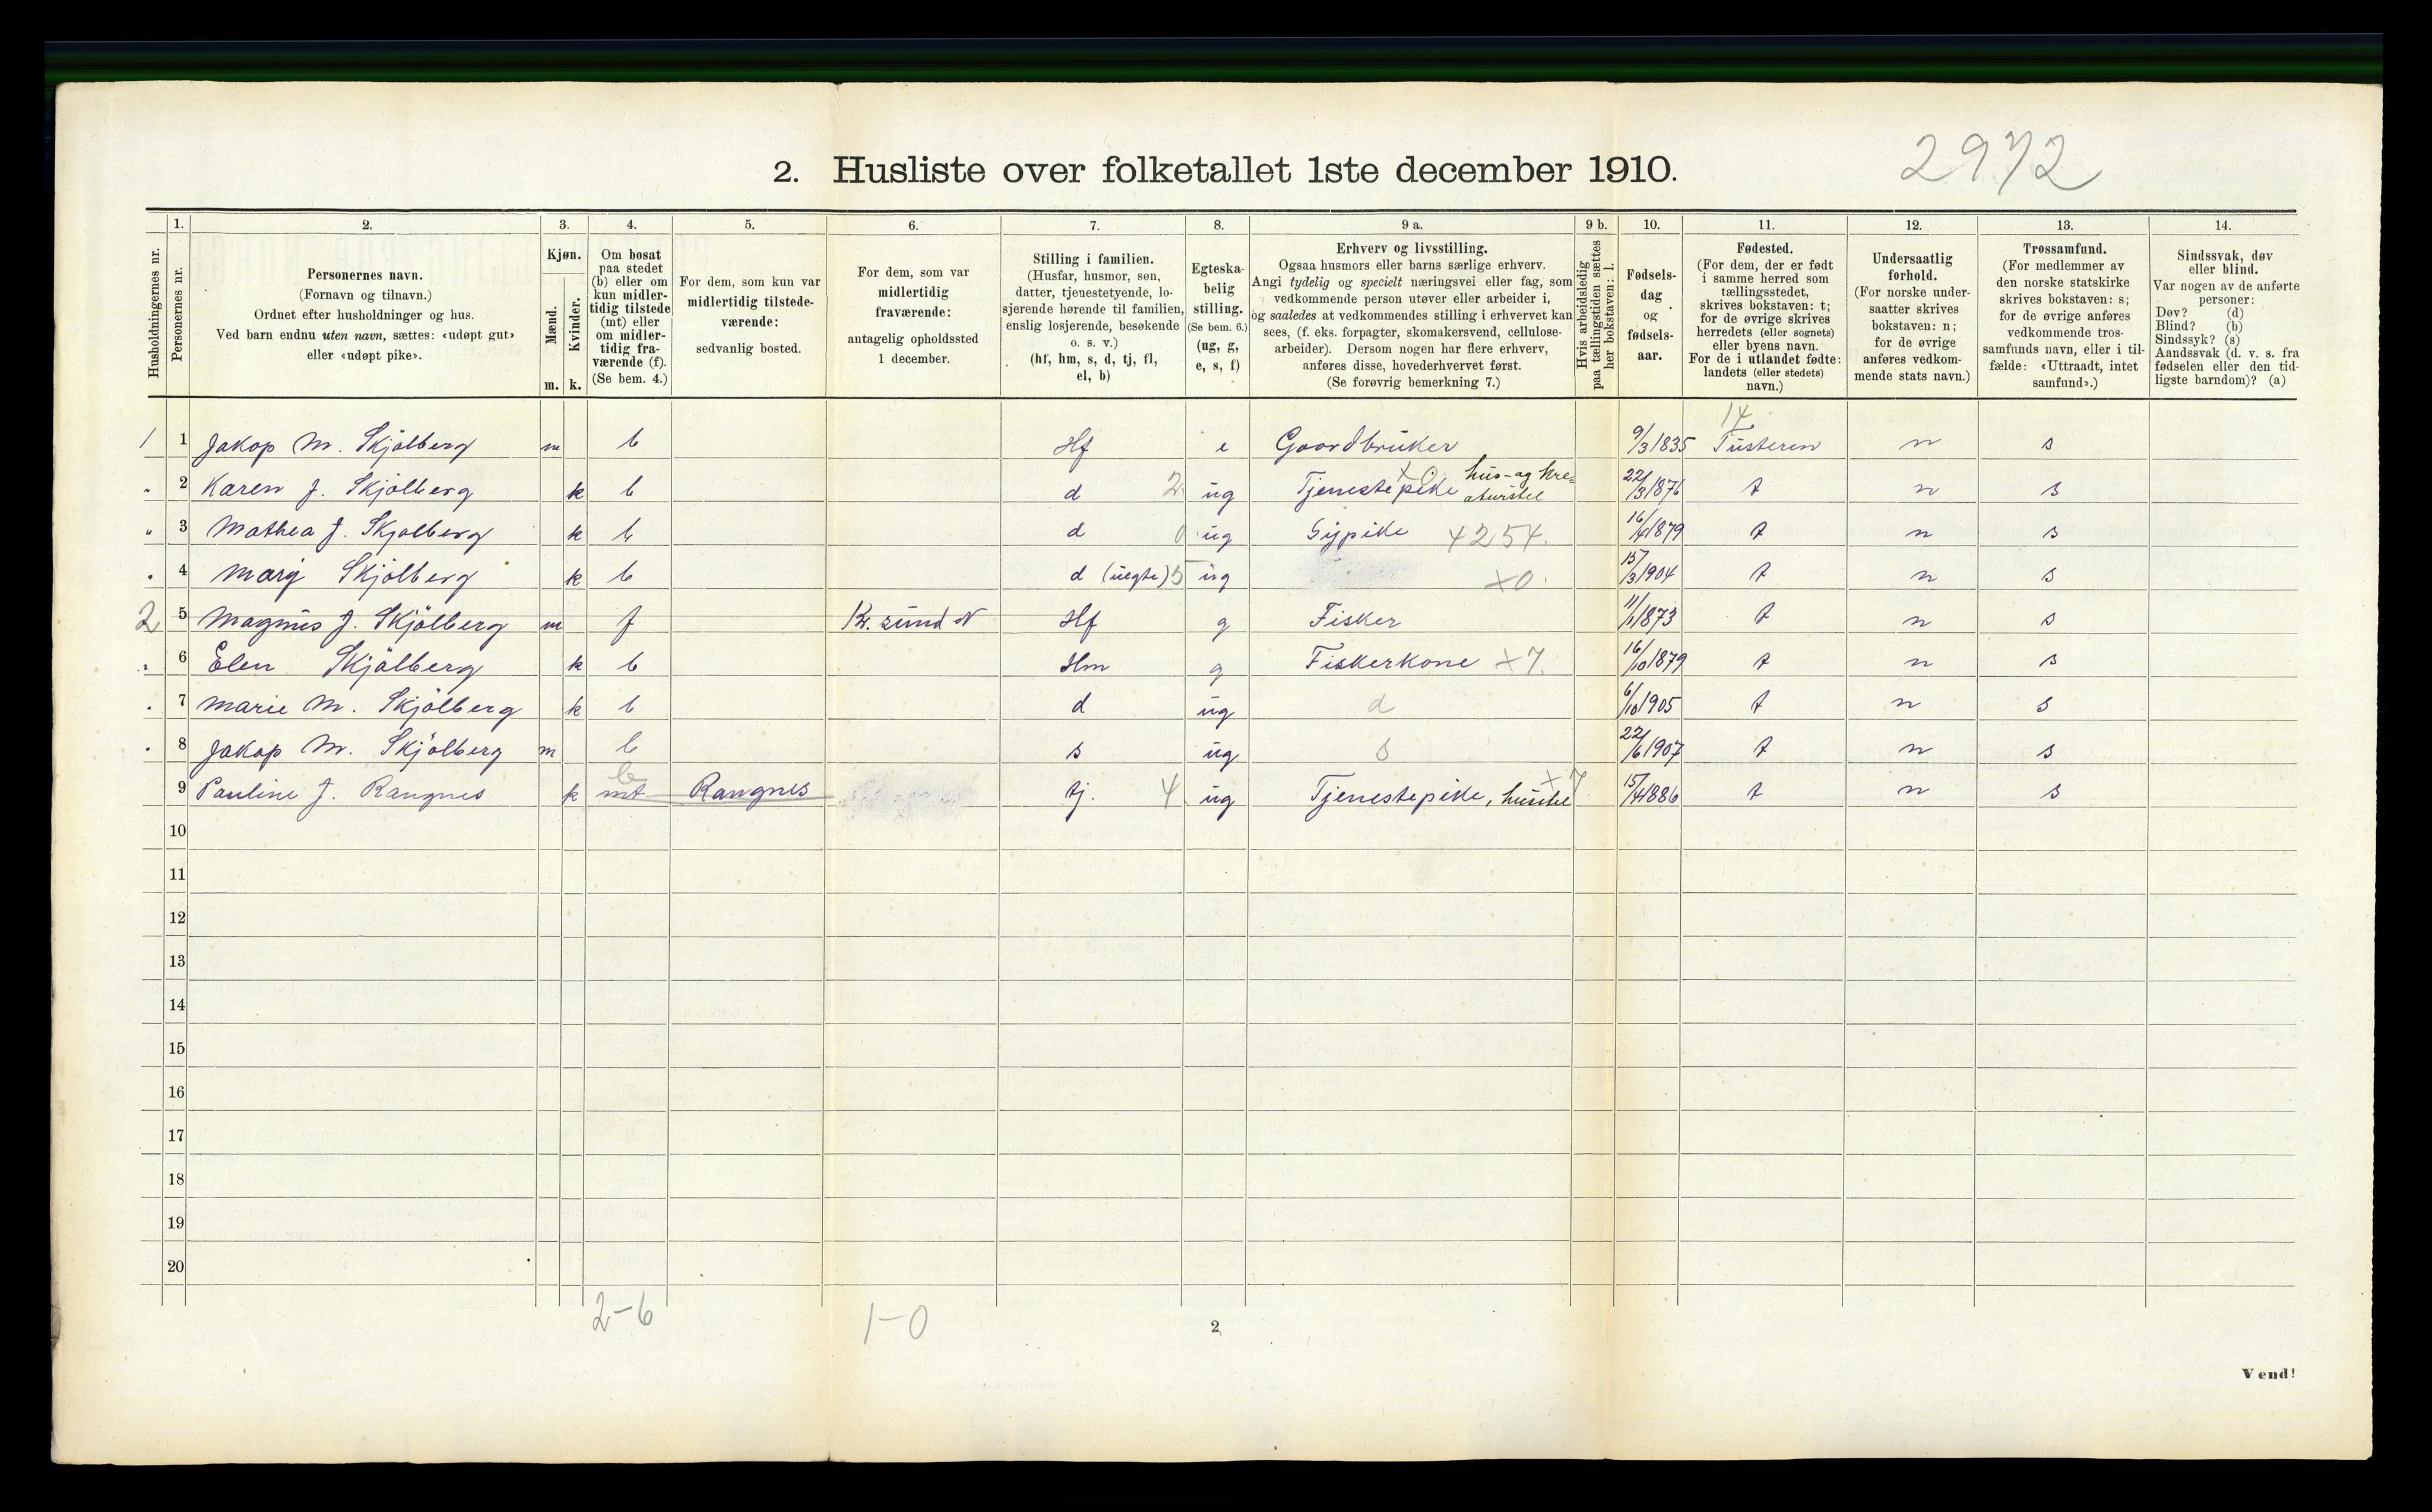 2972
2. Husliste over folketallet 1ste december 1910.
Husholdningernes nr.
1.
Personernes nr.
2.
Personernes navn.
(Fornavn og tilnavn.)
Ordnet efter husholdninger og hus.
Ved barn endnu uten navn, sættes: «udøpt gut»
eller «udøpt pike».
3.
Kjøn.
Mænd.
Kvinder.
m. k.
4.
Om bosat
paa stedet
(b) eller om
kun midler-
tidig tilstede
(mt) eller
om midler-
tidig fra-
værende (f).
(Se bem. 4.)
5.
For dem, som kun var
midlertidig tilstede-
værende:
sedvanlig bosted.
6.
For dem, som var
midlertidig
fraværende:
antagelig opholdssted
1 december.
7.
Stilling i familien.
(Husfar, husmor, søn,
datter, tjenestetyende, lo-
sjerende hørende til familien,
enslig losjerende, besøkende
o. s. v.)
(hf, hm, s, d, tj, fl,
el, b)
8.
Egteska-
belig
stilling.
(Se bem. 6.)
(ug, g,
e, s, f)
9 a.
Erhverv og livsstilling.
Ogsaa husmors eller barns særlige erhverv.
Angi tydelig og specielt næringsvei eller fag, som
vedkommende person utøver eller arbeider i,
og saaledes at vedkommendes stilling i erhvervet kan
sees, (f. eks. forpagter, skomakersvend, cellulose-
arbeider). Dersom nogen har flere erhverv,
anføres disse, hovederhvervet først.
(Se forøvrig bemerkning 7.)
9 b.
Hvis arbeidsledig
paa tællingstiden sættes
her bokstaven: l.
10.
Fødsels-
dag
og
fødsels-
aar.
11.
Fødested.
(For dem, der er født
i samme herred som
tællingsstedet,
skrives bokstaven: t;
for de øvrige skrives
herredets (eller sognets)
eller byens navn.
For de i utlandet fødte:
landets (eller stedets)
navn.)
12.
Undersaatlig
forhold.
(For norske under-
saatter skrives
bokstaven: n;
for de øvrige
anføres vedkom-
mende stats navn.)
13.
Trossamfund.
(For medlemmer av
den norske statskirke
skrives bokstaven: s;
for de øvrige anføres
vedkommende tros-
samfunds navn, eller i til-
fælde: «Uttraadt, intet
samfund».)
14.
Sindssvak, døv
eller blind.
Var nogen av de anførte
personer:
Døv? (d)
Blind? (b)
Sindssyk? (s)
Aandssvak (d. v. s. fra
fødselen eller den tid-
ligste barndom)? (a)
14
1 1 Jakop M. Skjølberg m b Hf e Gaardbruker 9/3 1835 Tusteren n s
" 2 Karen J. Skjølberg k b d 2 ug Tjenestepike x 0 hus- og kre-
aturstel 22/3 1876 t n s
" 3 Mathea J. Skjølberg k b d 0 ug Sypike 4254. 16/4 1879 t n s
" 4 Marij Skjølberg k b d (uegte) 5 ug x0. 15/3 1904 t n s
2 5 Magnus J. Skjølberg m f Kr. sund N Hf g Fisker 11/1 1873 t n s
" 6 Elen Skjølberg k b Hm g Fiskerkone x7. 16/10 1879 t n s
" 7 Marie M. Skjølberg k b d ug d 6/10 1905 t n s
" 8 Jakop M. Skjølberg m b s ug s 22/6 1907 t n s
b
9 Pauline J. Rangnes k mt Rangnes tj. 4 ug Tjenestepike, husstel x 7 15/4 1886 t n s
10
11
12
13
14
15
16
17
18
19
20
2-6 1-0
2
Vend!